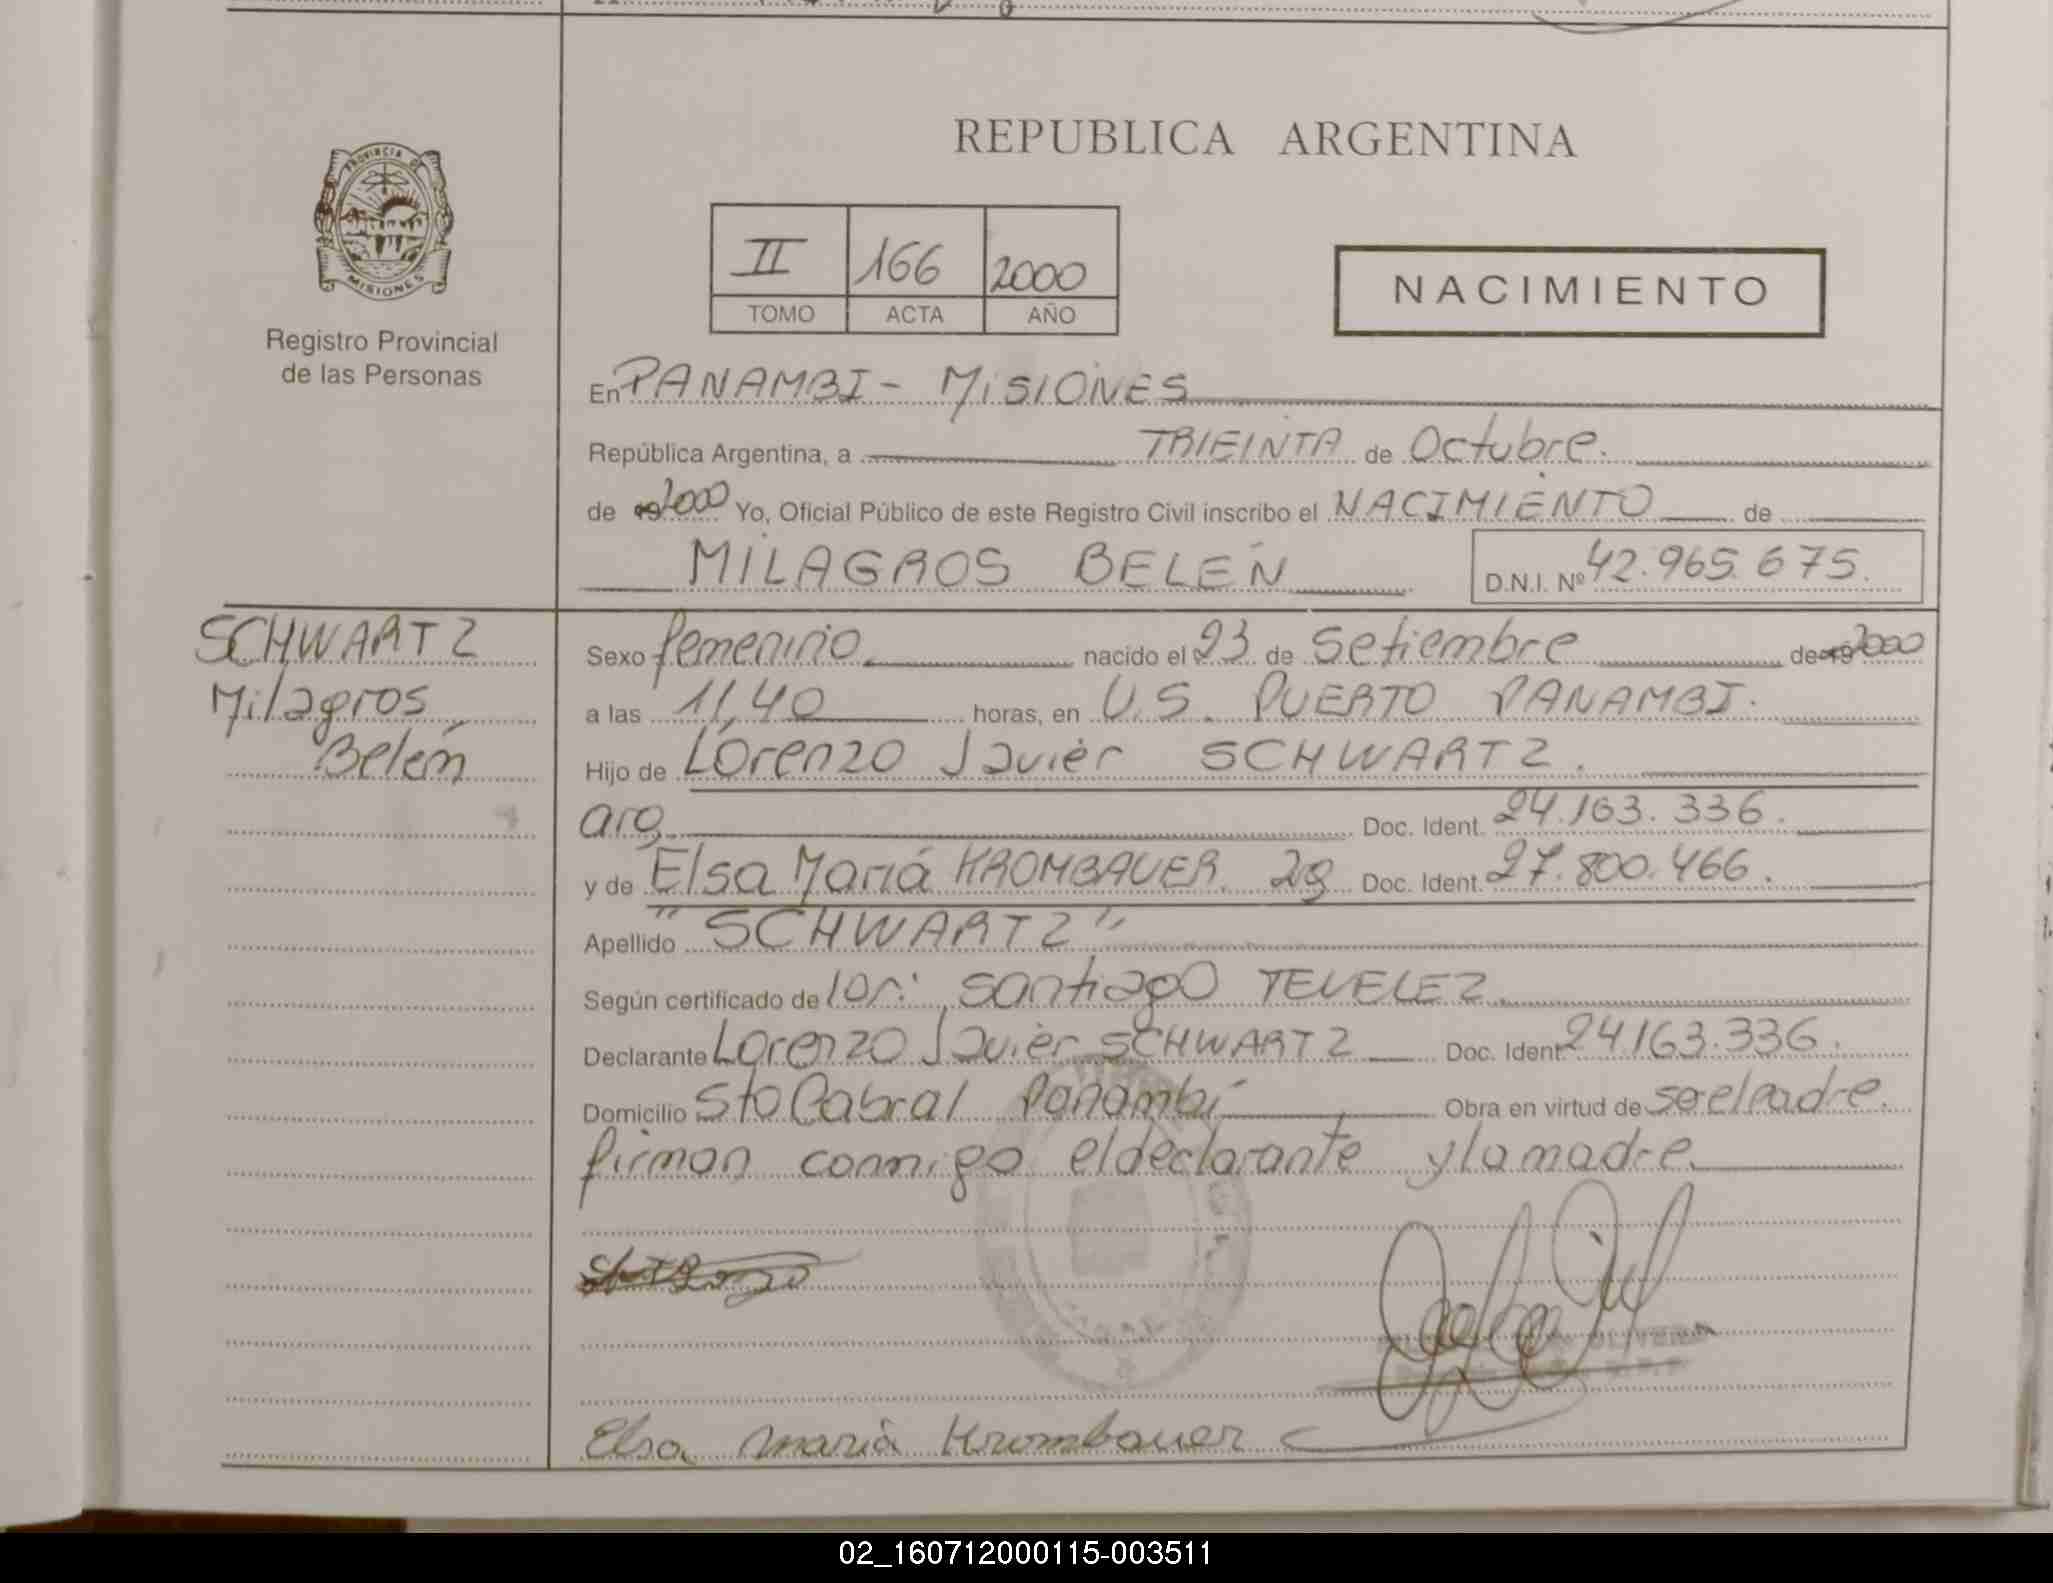 REPUBLICA ARGENTINA
PROVINCIA DE
MISIONES
Registro Provincial
de las Personas
II 166 2000
TOMO ACTA AÑO
NACIMIENTO
En PANAMBI - MISIONES
República Argentina, a TRIEINTA de Octubre.
de 2000 Yo, Oficial Público de este Registro Civil inscribo el NACIMIENTO de
MILAGROS BELEN D.N.I. Nº 42.965.675.
SCHWARTZ
Milagros
Belén
Sexo femenino nacido el 23 de Setiembre de 2000
a las 11,40 horas, en U.S. PUERTO PANAMBI.
Hijo de Lorenzo Javier SCHWARTZ.
arg. Doc. Ident. 24.163.336.
y de Elsa María KROMBAUER. Doc. Ident. 27.800.466.
Apellido "SCHWARTZ"
Según certificado de Santiago TEVELEZ
Declarante Lorenzo Javier SCHWARTZ Doc. Ident. 24.163.336.
Domicilio Sto Cabral Panambí Obra en virtud de so el padre.
firman conmigo el declarante y la madre.
OLIVERA
Elsa maria Krombauer
02_160712000115-003511